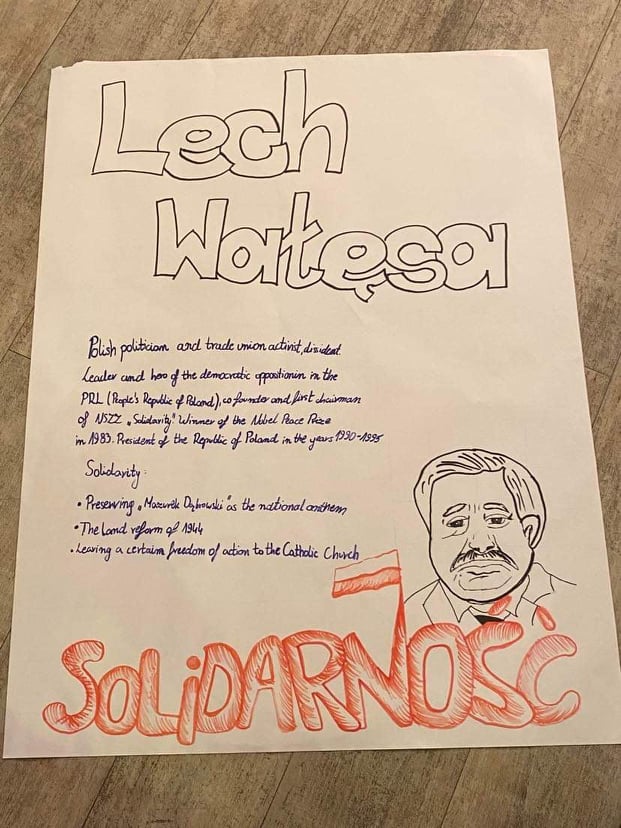 Lech
Wałęsa
Polish politician and trade union activist, dissident
Leader and hero of the democratic oppositionin in the
PRL (People's Republic of Poland), co founder and first chairman
of NSZZ „Solidarity" Winner of the Nobel Peace Prize
in 1983. President of the Republic of Poland in the years 1990-1995
Solidarity:
• Preserving „Mazurek Dąbrowski" as the national anthem
• The land reform of 1944
• Leaving a certain freedom of action to the Catholic Church
SOLiDARNOŚĆ